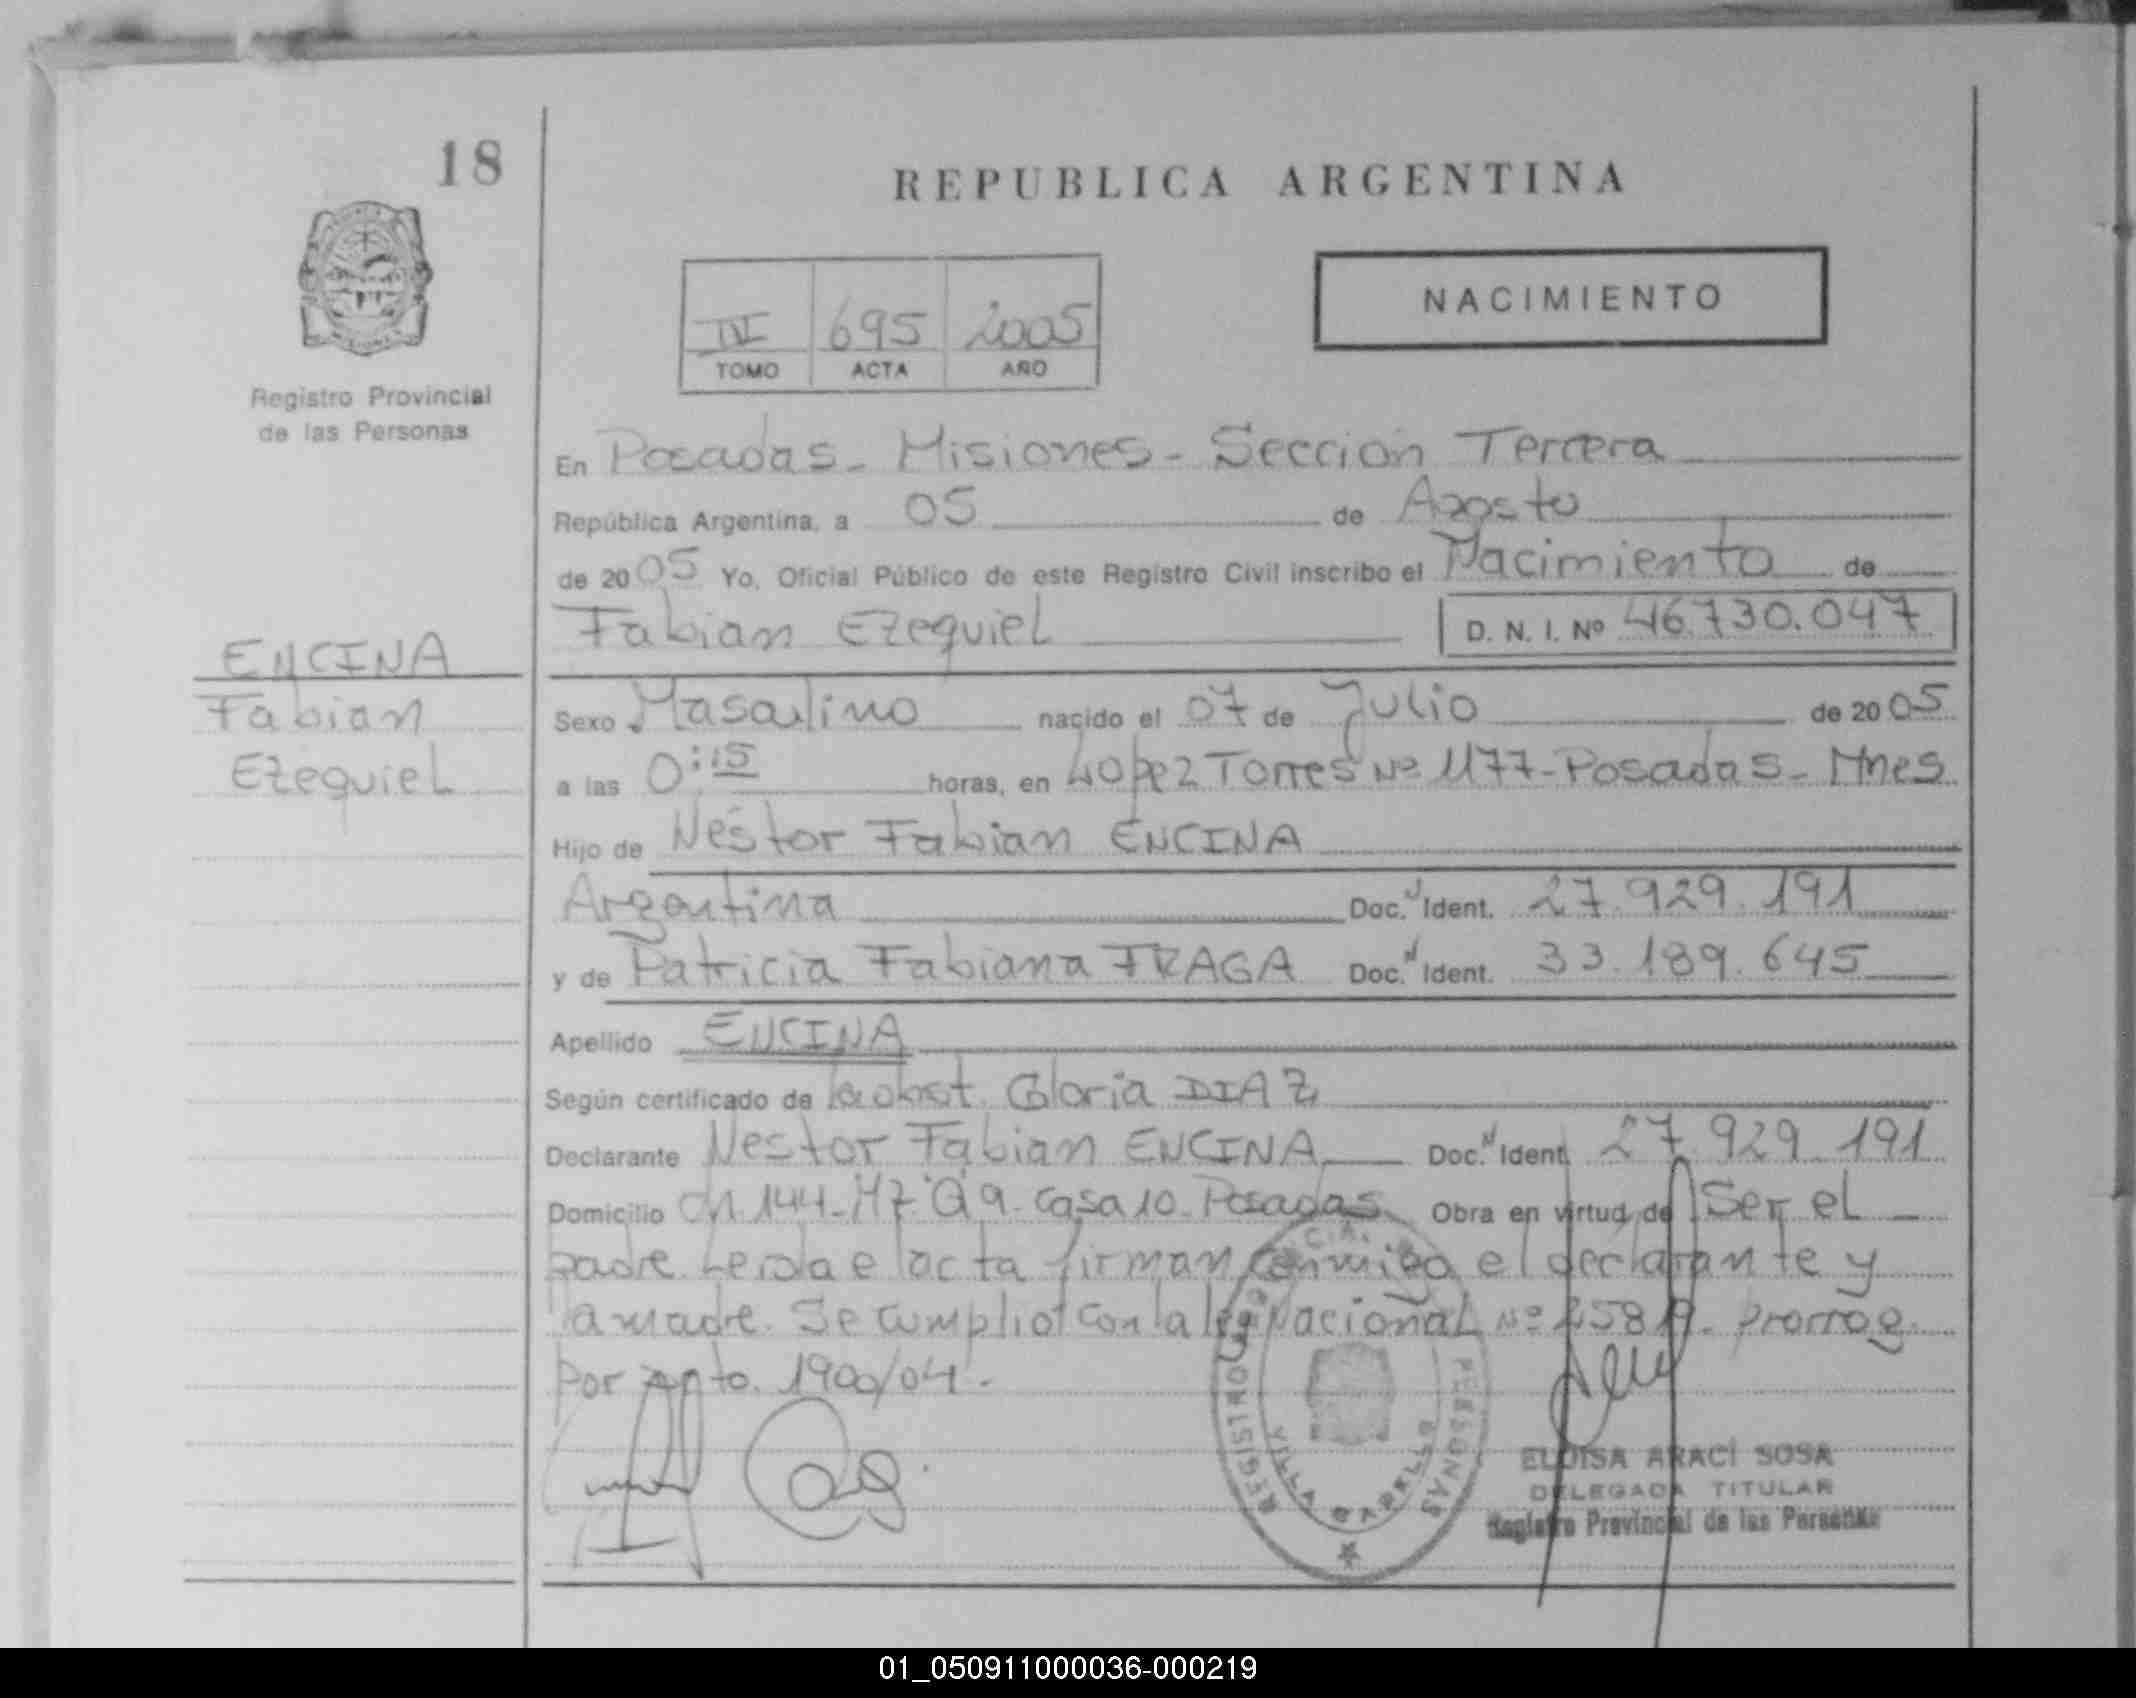 18
REPUBLICA ARGENTINA
NACIMIENTO
695 2005
TOMO ACTA AÑO
Registro Provincial
de las Personas
En Posadas - Misiones - Seccion Tercera
República Argentina, a 05 de Agosto
de 2005 Yo, Oficial Público de este Registro Civil inscribo el Nacimiento de
Fabian Ezequiel D. N. I. Nº 46.730.047
ENCINA
Fabian
Ezequiel
Sexo Masculino nacido el 07 de Julio de 2005
a las 0:15 horas, en Lopez Torres Nº 1177 - Posadas - Mnes
Hijo de Nestor Fabian ENCINA
Argentina Doc. Ident. 27.929.191
y de Patricia Fabiana FRAGA Doc. Ident. 33.189.645
Apellido ENCINA
Según certificado de la obst. Gloria DIAZ
Declarante Nestor Fabian ENCINA Doc. Ident. 27.929.191
Domicilio Ch. 144 - Mz. casa 10. Posadas Obra en virtud de Ser el
padre. Leida el acta firman conmigo el declarante y
la madre. Se cumplio con la ley Nacional Nº prorrog.
por 1900/04.-
REGISTRO PERSONAS
VILLA CABELLO
ELOISA ARACÍ SOSA
DELEGADA TITULAR
Registro Provincial de las Personas
01_050911000036-000219